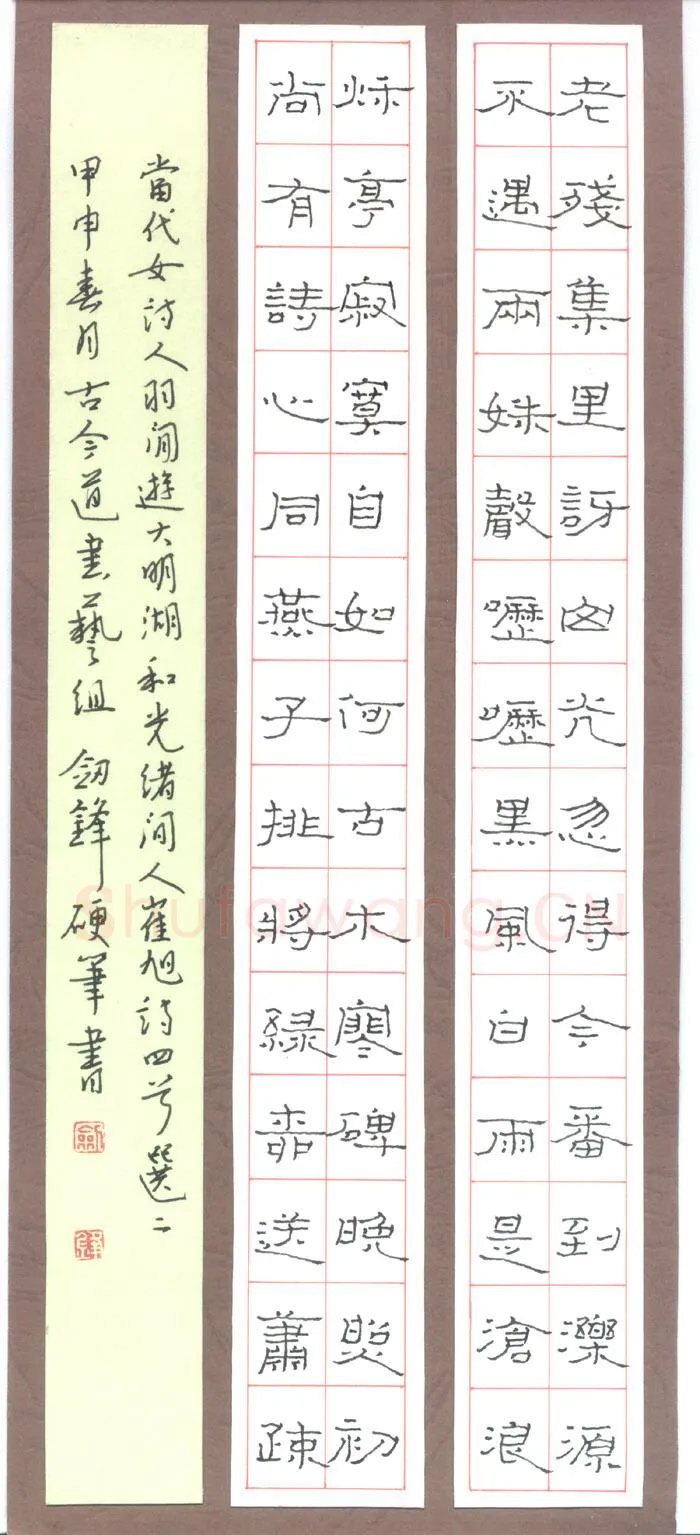 老殘集里訝光忽得今番到濼源
不遇兩姝聲嚦嚦黑風白雨是滄浪
秌亭寂寞自如何古木寒碑晚照初
尚有詩心同燕子排將綠柳送蕭疎
當代女詩人羽閒遊大明湖和光緒間人崔旭詩四首選二
甲申春月古今道書藝組 劍鋒硬筆書
劍
鋒
Shufawang.CN